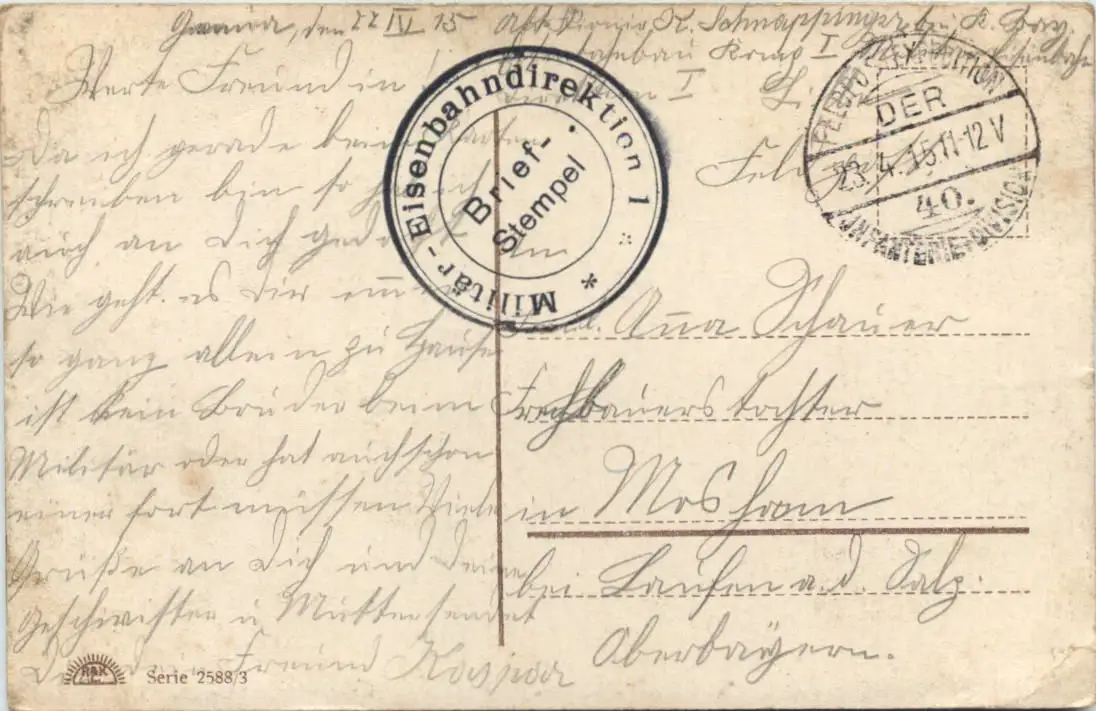 den 22 IV 15 Abs. Pionir K. Schnappinger bei K. Bay.
Komp I
Werte Freund in
I
Da ich gerade beim Karten
schreiben bin so
auch an Dich gedacht
Wie geht es dir
so ganz allein zu Hause
ist kein Bruder beim
Militär oder hat auch schon
einer fort müssen Viele
Grüße an Dich und deine
Geschwister u Mutter sendet
dein Freund Kaspar
Militär-Eisenbahndirektion 1
Brief-
Stempel
FELDPOSTEXPEDITION
DER
23.4.15.11-12V
40.
INFANTERIE-DIVISION
Anna Schauer
bauerstochter
in Mosham
bei Laufen a. d. Salz.
Oberbayern.
R&K
Serie 2588/3